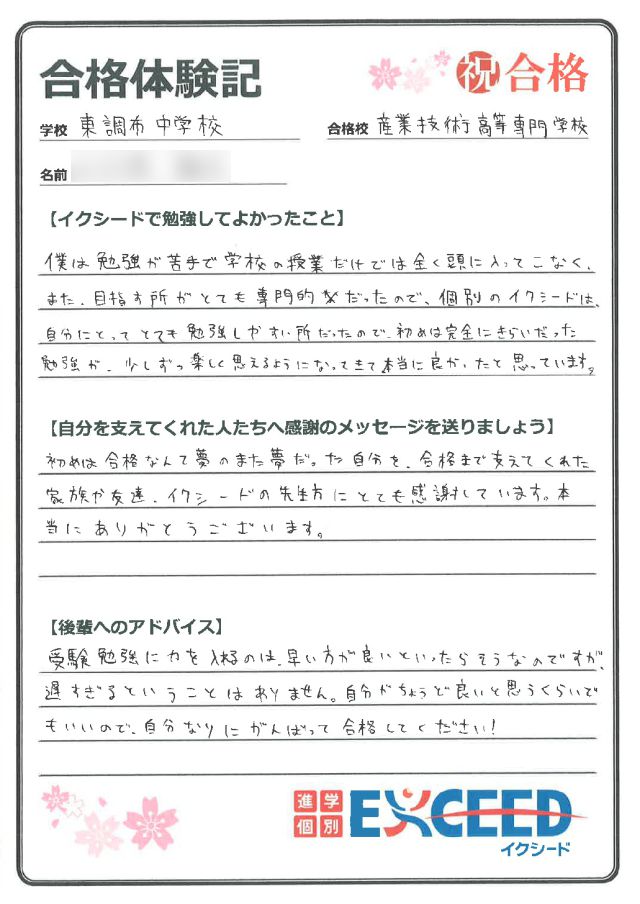 合格体験記
祝 合格
学校 東調布中学校
合格校 産業技術高等専門学校
名前
【イクシードで勉強してよかったこと】
僕は勉強が苦手で学校の授業だけでは全く頭に入ってこなく、
また、目指す所がとても専門的なだったので、個別のイクシードは、
自分にとってとても勉強しやすい所だったので、初めは完全にきらいだった
勉強が、少しずつ楽しく思えるようになってきて本当に良かったと思っています。
【自分を支えてくれた人たちへ感謝のメッセージを送りましょう】
初めは合格なんて夢のまた夢だった自分を、合格まで支えてくれた
家族や友達、イクシードの先生方にとても感謝しています。本
当にありがとうございます。
【後輩へのアドバイス】
受験勉強に力を入れるのは、早い方が良いといったらそうなのですが、
遅すぎるということはありません。自分がちょうど良いと思うくらいで
もいいので、自分なりにがんばって合格してください!
進学
個別
EXCEED
イクシード